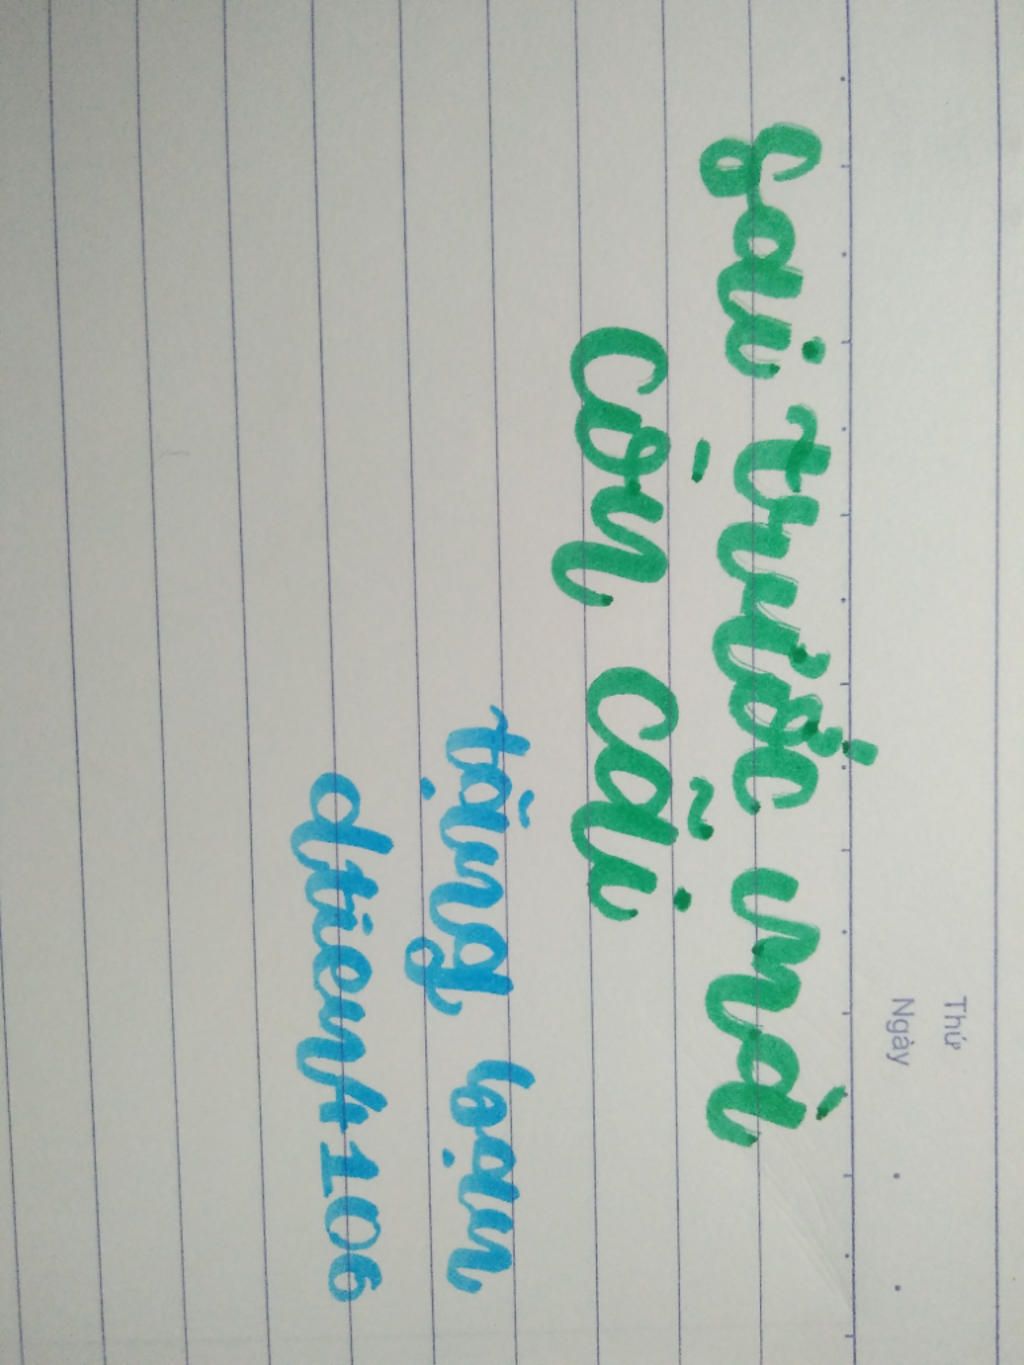 Thứ
Ngày
sai trước mà
còn cãi
tặng bạn
dtienh106